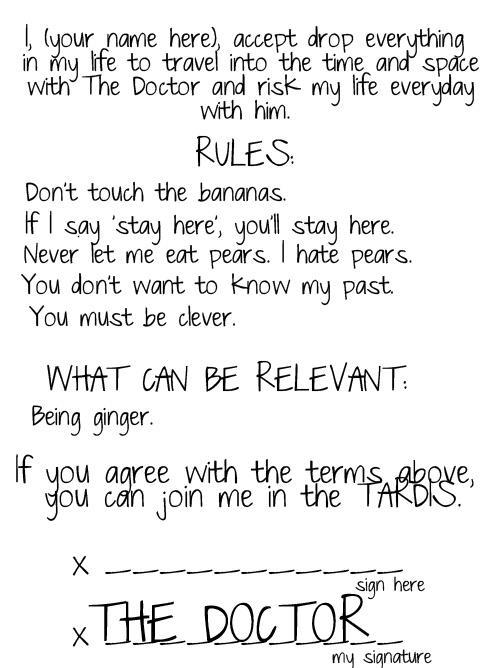 I, (your name here), accept drop everything
in my life to travel into the time and space
with The Doctor and risk my life everyday
with him.
RULES:
Don't touch the bananas.
If I say 'stay here', you'll stay here.
Never let me eat pears. I hate pears.
You don't want to know my past.
You must be clever.
WHAT CAN BE RELEVANT:
Being ginger.
If you agree with the terms above,
you can join me in the TARDIS.
x ___________
sign here
x THE DOCTOR
my signature